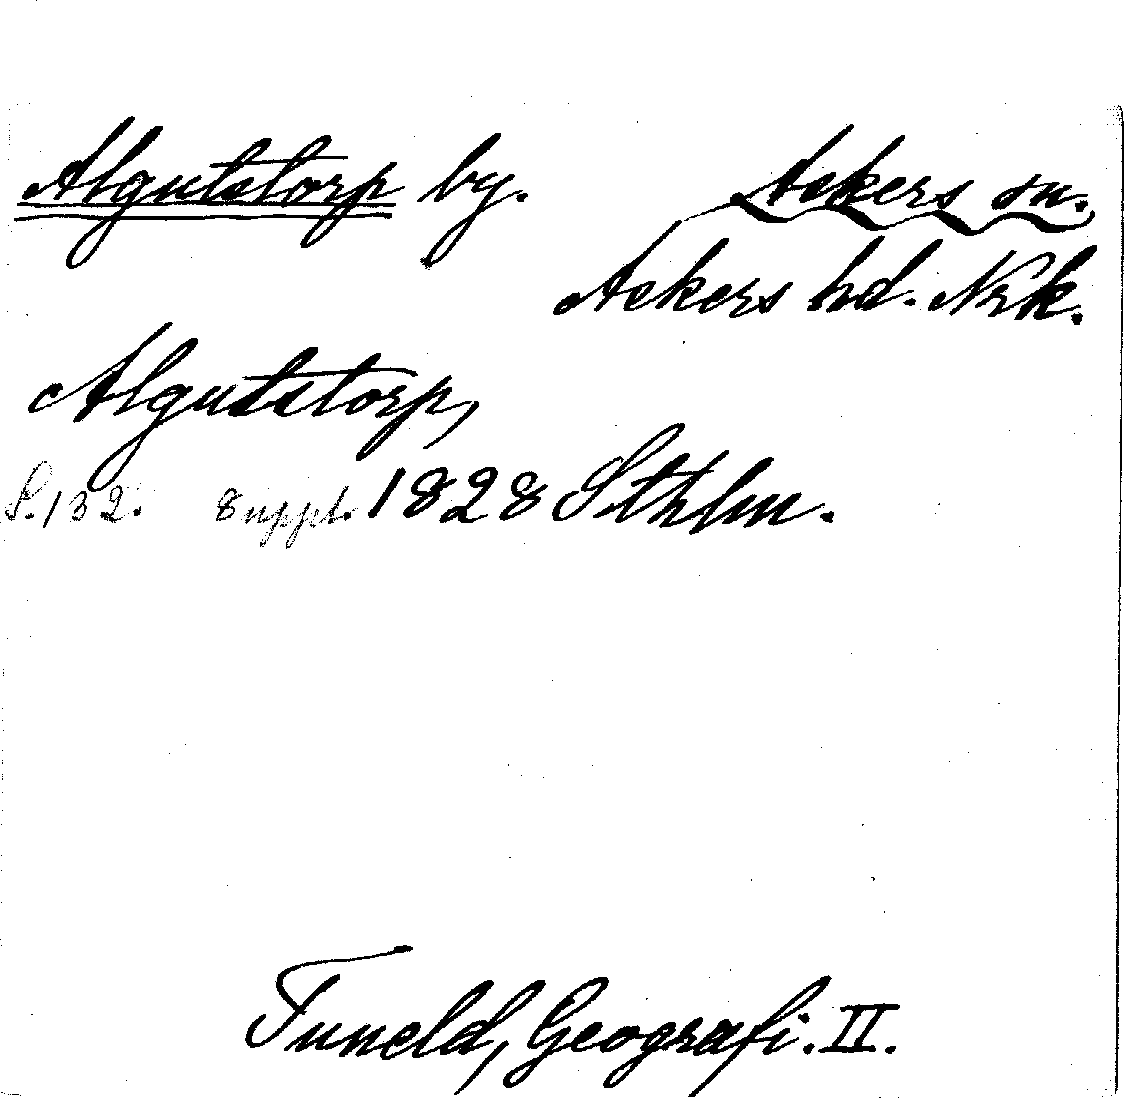 Algutstorp by. Askers sn.
Askers hd. Nrk.
Algutstorp,
S. 132. 8 uppl. 1828 Sthlm.
Tuneld, Geografi. II.